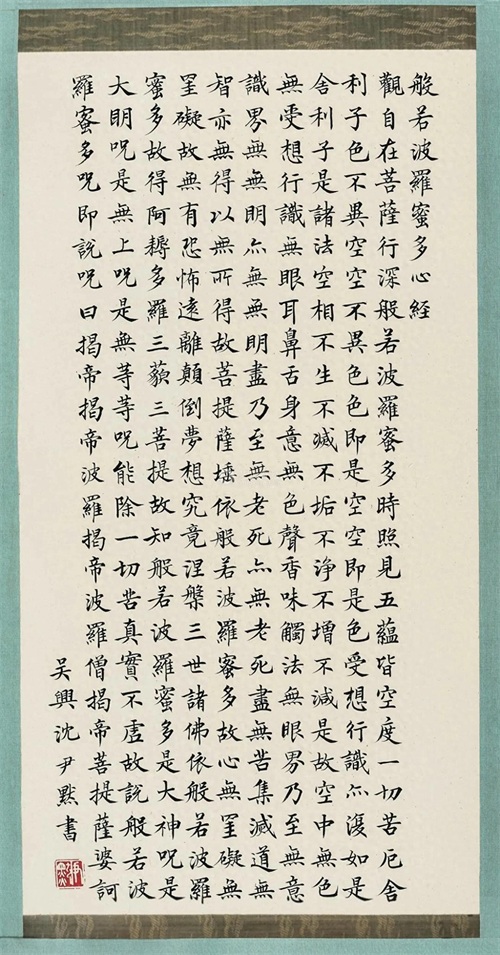 般若波羅蜜多心経
觀自在菩薩行深般若波羅蜜多時照見五蘊皆空度一切苦厄舍
利子色不異空空不異色色即是空空即是色受想行識亦復如是
舍利子是諸法空相不生不滅不垢不淨不增不減是故空中無色
無受想行識無眼耳鼻舌身意無色聲香味觸法無眼界乃至無意
識界無無明亦無無明盡乃至無老死亦無老死盡無苦集滅道無
智亦無得以無所得故菩提薩埵依般若波羅蜜多故心無罣礙無
罣礙故無有恐怖遠離顛倒夢想究竟涅槃三世諸佛依般若波羅
蜜多故得阿耨多羅三藐三菩提故知般若波羅蜜多是大神呪是
大明呪是無上呪是無等等呪能除一切苦真實不虛故說般若波
羅蜜多呪即說呪曰揭帝揭帝波羅揭帝波羅僧揭帝菩提薩婆訶
吴興沈尹默書